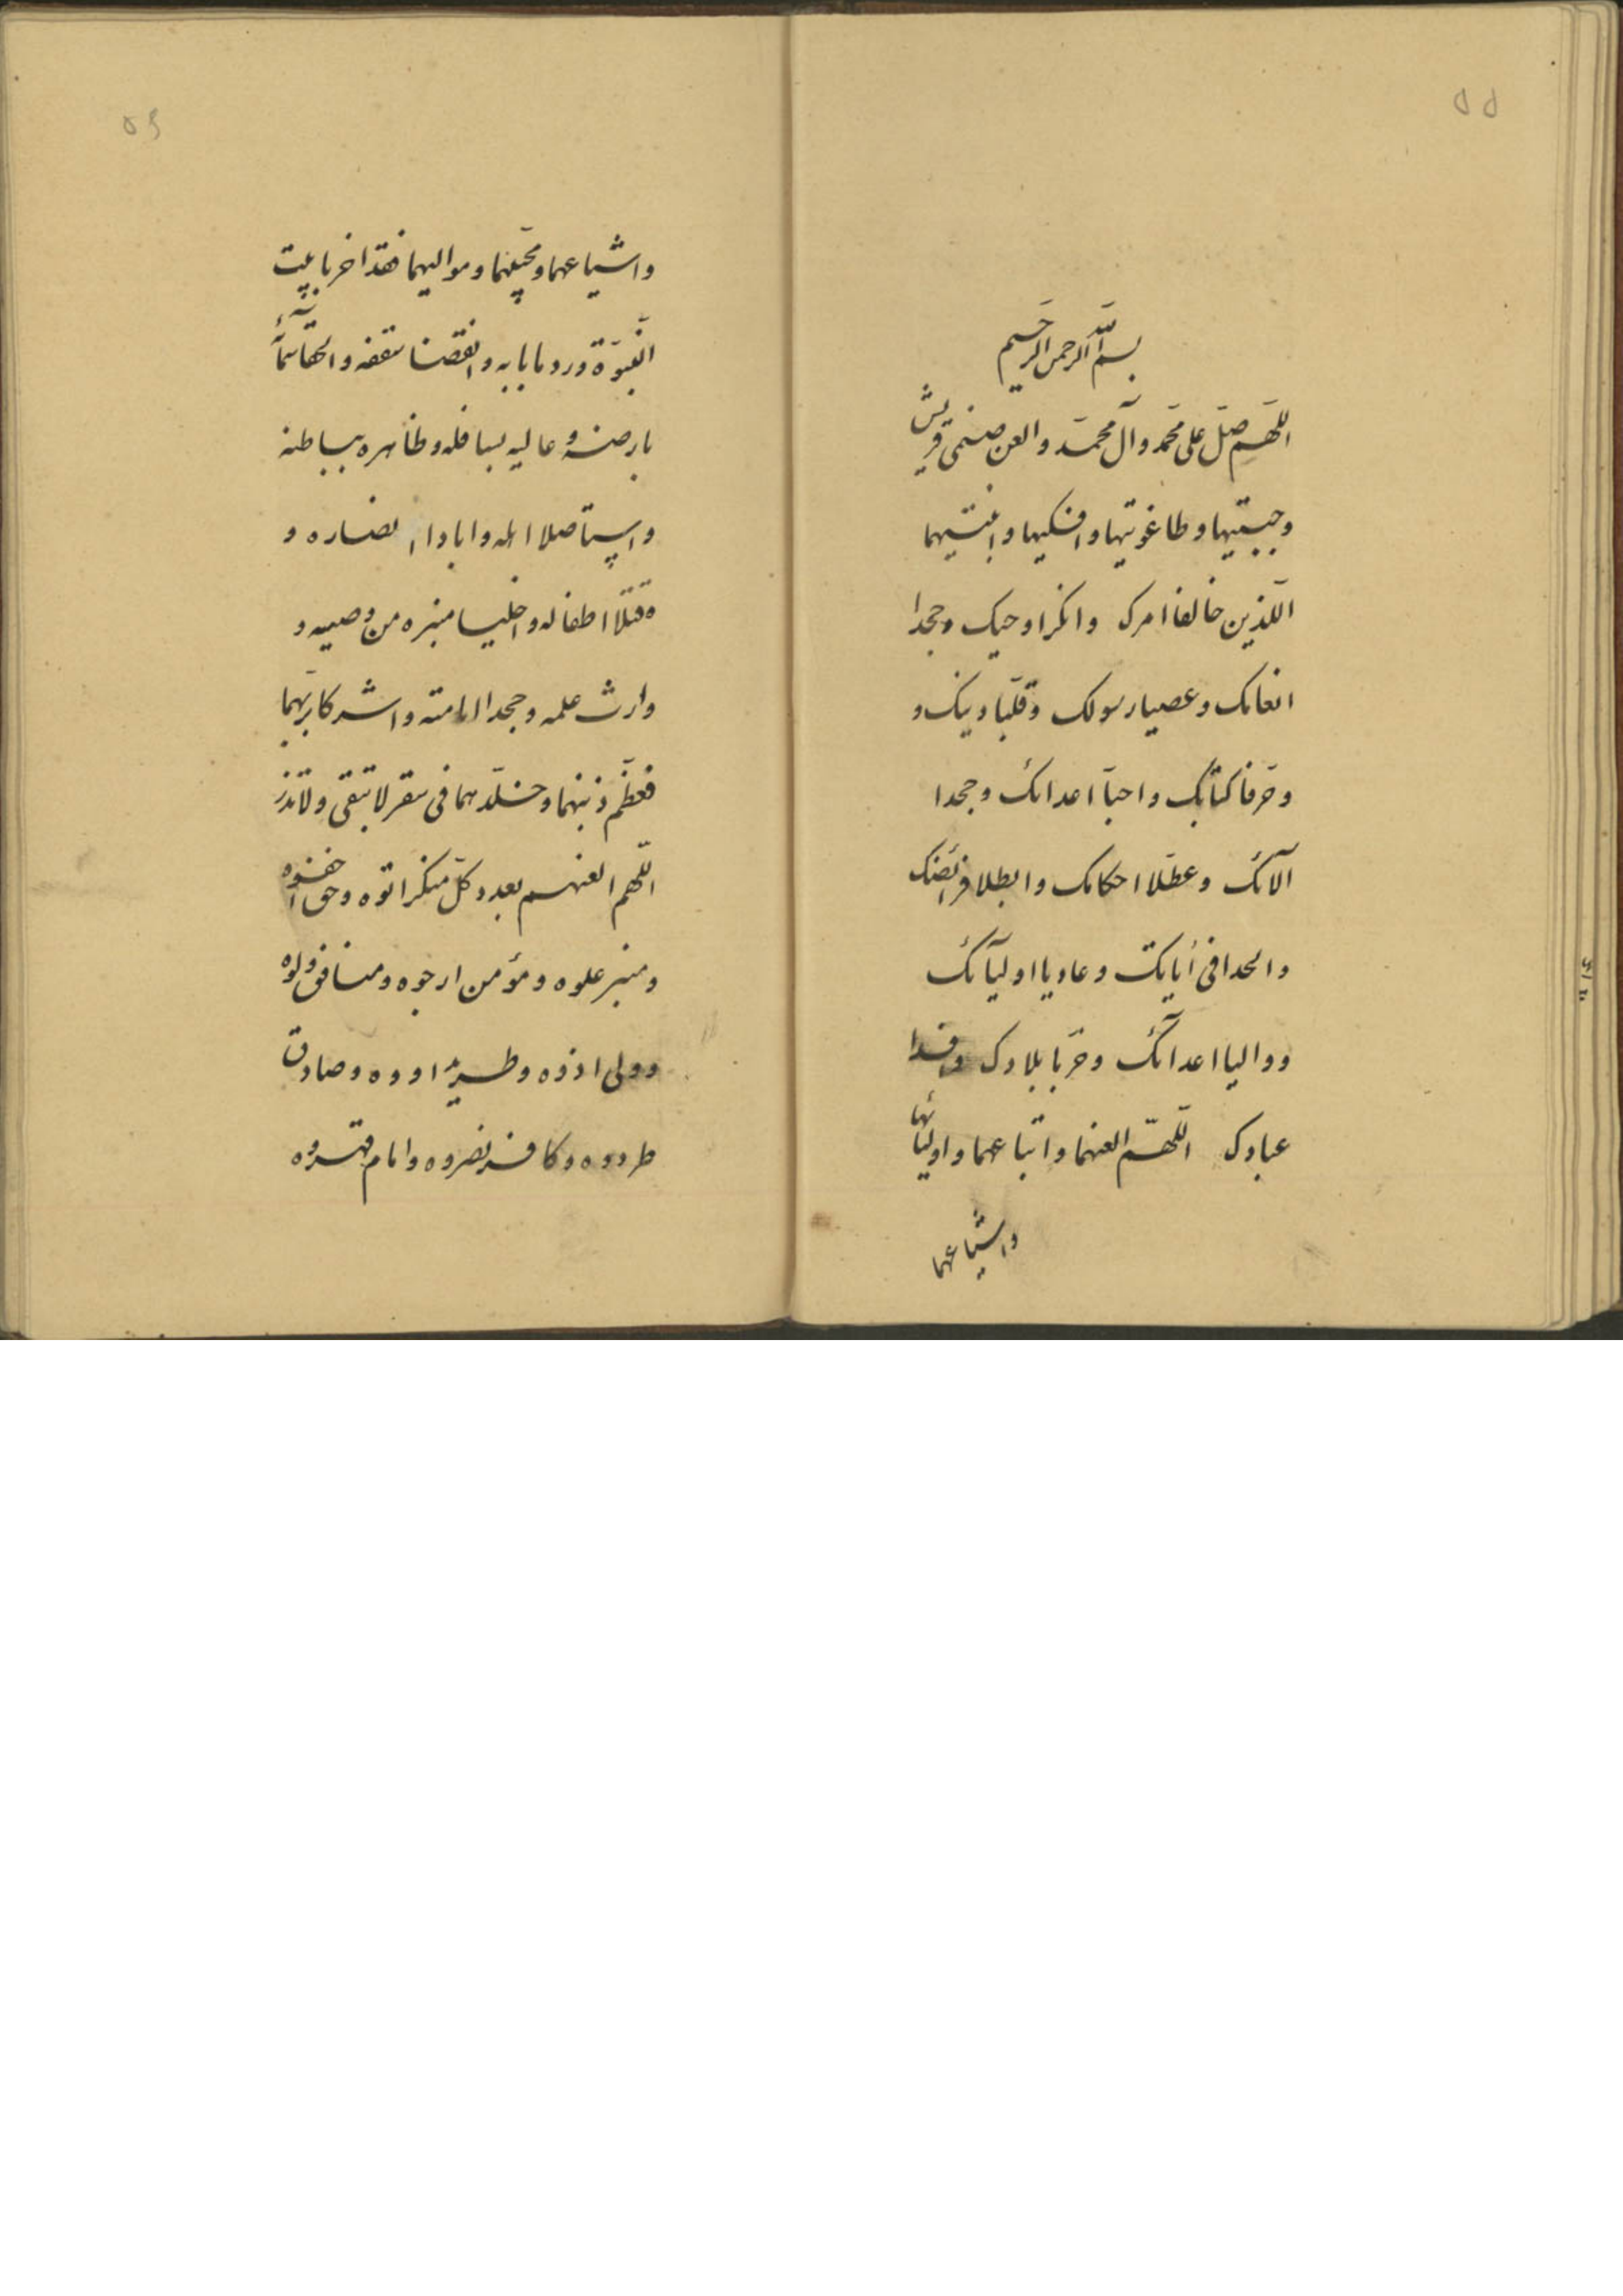 ۵۵
بسم الله الرحمن الرحیم
اللهم صل علی محمد وآل محمد والعن صنمی قریش
وجبتیها وطاغوتیها وافکیها وابنتیهما
اللذین خالفا امرک وانکرا وحیک وجحدا
انعامک وعصیا رسولک وقلبا دینک و
وحرفا کتابک واحبا اعدائک وجحدا
آلائک وعطلا احکامک وابطلا فرائضک
والحدا فی آیاتک وعادیا اولیآئک
ووالیا اعدآئک وخربا بلادک وافسدا
عبادک اللهم العنهما واتباعهما واولیائهما
واشیاعهما
۵۶
واشیاعهما ومحبیهما وموالیهما فقد اخربا بیت
النبوة وردما بابه وانقضا سقفه والحقا سمآئه
بارضه وعالیه بسافله وظاهره بباطنه
واستاصلا اهله وابادا انصاره و
وقتلا اطفاله واخلیا منبره من وصیه و
وارث علمه وجحدا امامته واشرکا بربهما
فعظم ذنبهما وخلدهما فی سقر لا تبقی ولا تذر
اللهم العنهم بعدد کل منکر اتوه وحق اخفوه
ومنبر علوه ومؤمن ارجوه ومنافق ولوه
وولی اذوه وطرید اووه وصادق
طردوه وکافر نصروه وامام قهروه